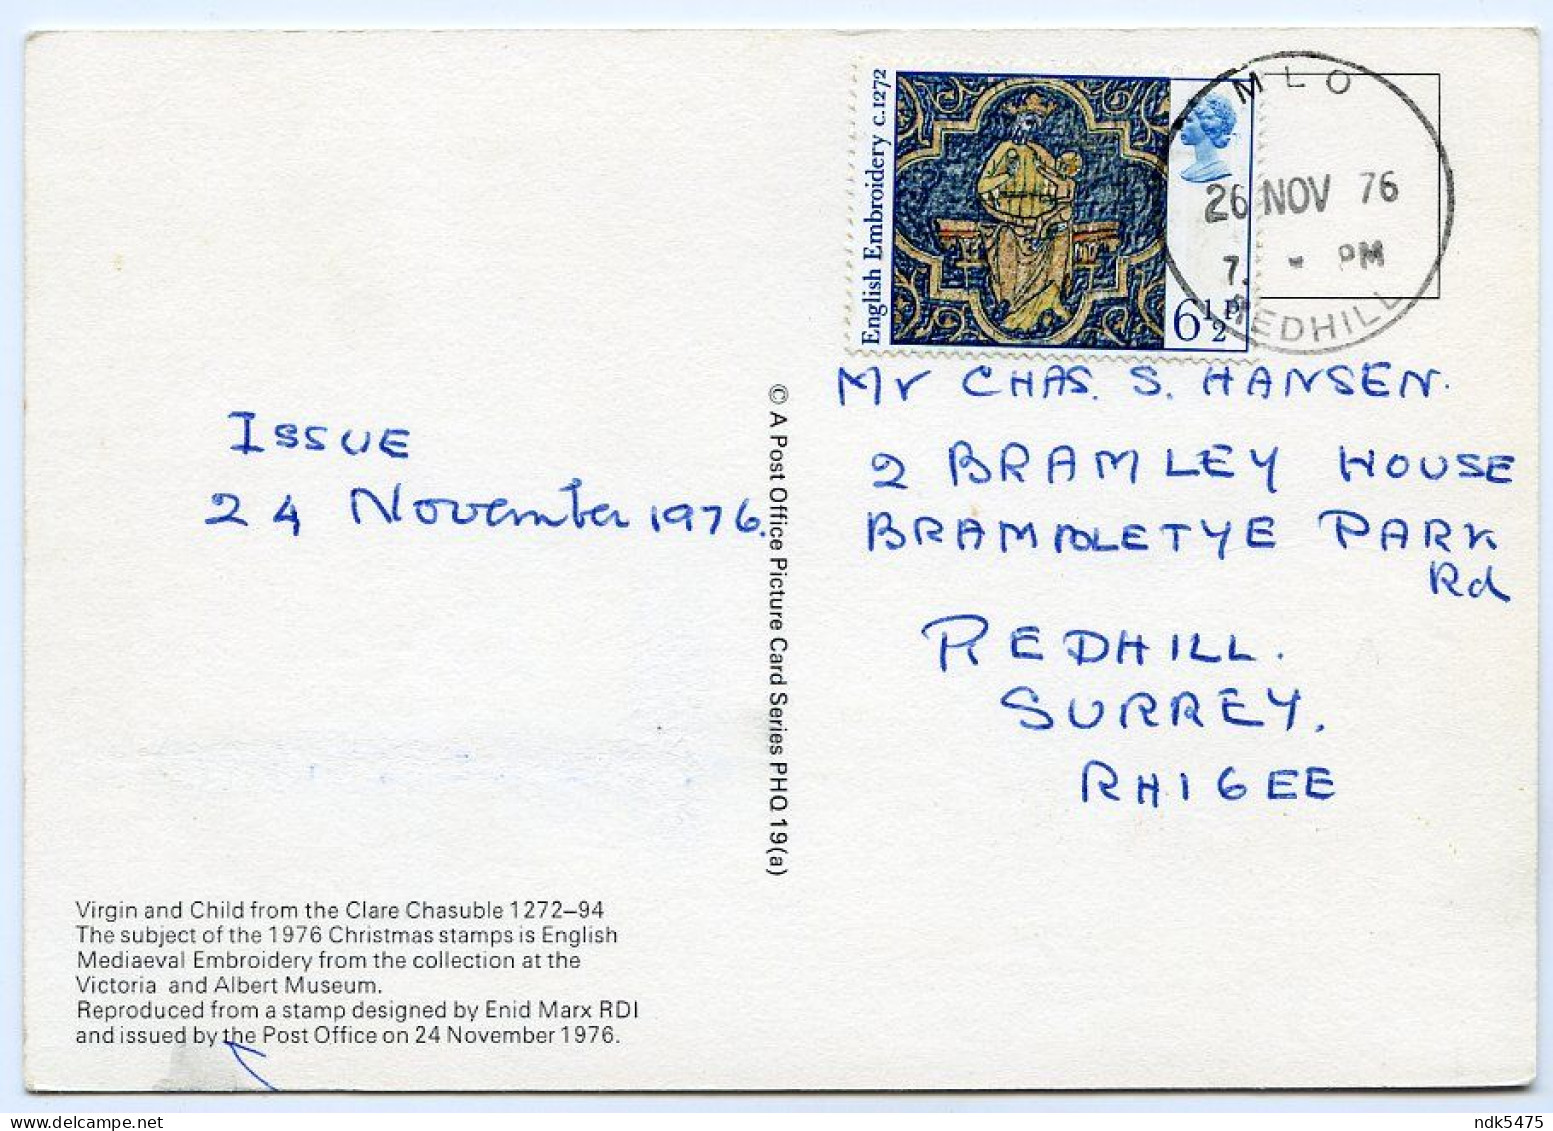 English Embroidery c.1272
6½P
MLO
26 NOV 76
7. - PM
REDHILL
Issue
24 November 1976.
© A Post Office Picture Card Series PHQ 19(a)
Mr CHAS. S. HANSEN.
2 BRAMLEY HOUSE
BRAMBLETYE PARK
Rd
REDHILL.
SURREY.
RH1 6EE
Virgin and Child from the Clare Chasuble 1272–94
The subject of the 1976 Christmas stamps is English
Mediaeval Embroidery from the collection at the
Victoria and Albert Museum.
Reproduced from a stamp designed by Enid Marx RDI
and issued by the Post Office on 24 November 1976.
ndk5475